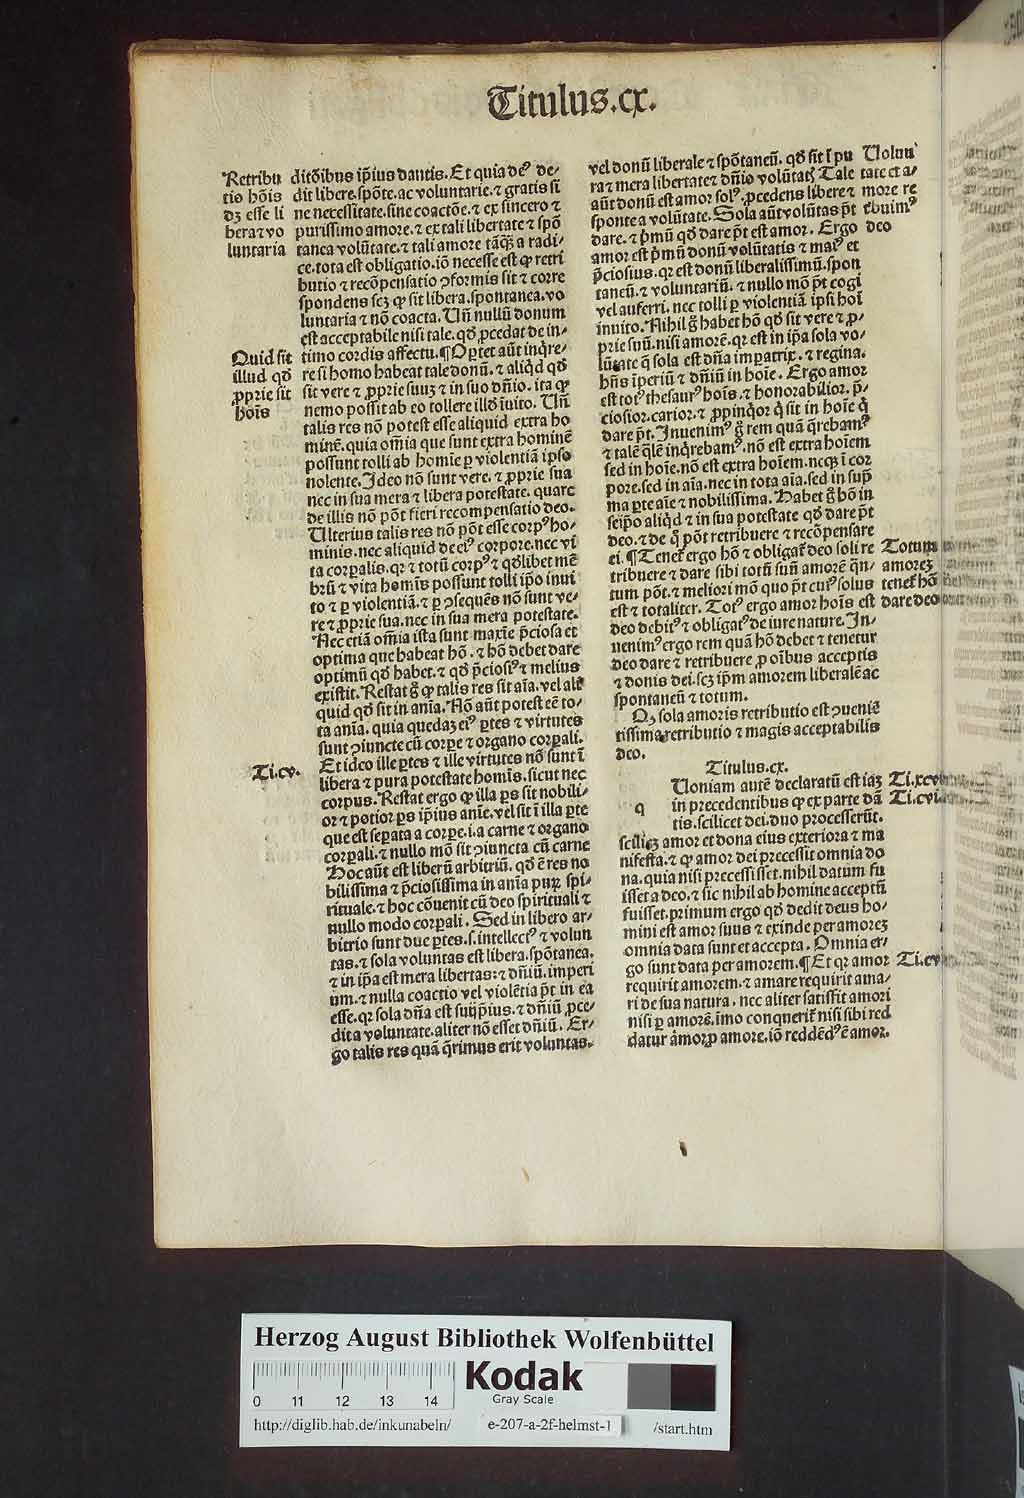 Titulus.cx.
Retribu
tio hoīs
dʒ esse li
bera ⁊ vo
luntaria
ditōibus ip̄ius dantis. Et quia deꝰ de-
dit libere.spōte.ac voluntarie.⁊ gratis si
ne necessitate.sine coactōe.⁊ ex sincero ⁊
purissimo amore.⁊ ex tali libertate ⁊ spō
tanea volūtate.⁊ tali amore tāqʒ a radi-
ce.tota est obligatio.iō necesse est ꝙ retri
butio ⁊ recōpensatio ꝯformis sit ⁊ corre
spondens scʒ ꝙ sit libera.spontanea.vo
luntaria ⁊ nō coacta. Un̄ nullū donum
est acceptabile nisi tale.qđ ꝓcedat de in-
Quid sit
illud qđ
ꝓprie sit
hoīs
timo cordis affectu.¶Oꝑtet aūt inq̄re-
re si homo habeat tale donū.⁊ aliqd qđ
sit vere ⁊ ꝓprie suuʒ ⁊ in suo dn̄io.ita ꝙ
nemo possit ab eo tollere illđ īuito. Un̄
talis res nō potest esse aliquid extra ho
minē.quia om̄ia que sunt extra hominē
possunt tolli ab homīe ꝑ violentiā ipso
nolente. Ideo nō sunt vere.⁊ ꝓprie sua
nec in sua mera ⁊ libera potestate. quare
de illis nō pōt fieri recompensatio deo.
Ulterius talis res nō pōt esse corpꝰ ho-
minis.nec aliquid de eiꝰ corpore.nec vi
ta corꝑalis.qr ⁊ totū corpꝰ ⁊ qđlibet mē
brū ⁊ vita homīs possunt tolli ip̄o inui
to ⁊ ꝑ violentiā.⁊ ꝑ ꝯsequēs nō sunt ve-
re ⁊ ꝓprie sua.nec in sua mera potestate.
Nec etiā om̄ia ista sunt maxīe p̄ciosa et
optima que habeat hō.⁊ hō debet dare
optimū qđ habet.⁊ qđ p̄ciosiꝰ ⁊ melius
existit. Restat g̊ ꝙ talis res sit aīa.vel ali
quid qđ sit in anīa. Nō aūt potest eē to-
ta anīa. quia quedaʒ eiꝰ ꝑtes ⁊ virtutes
sunt ꝯiuncte cū corꝑe ⁊ organo corꝑali.
Ti.cv.
Et ideo ille ꝑtes ⁊ ille virtutes nō sunt ī
libera ⁊ pura potestate homīs.sicut nec
corpus. Restat ergo ꝙ illa ꝑs sit nobili-
or ⁊ potior ꝑs ip̄ius anīe.vel sit ī illa ꝑte
que est seꝑata a corꝑe.i.a carne ⁊ organo
corꝑali.⁊ nullo mō sit ꝯiuncta cū carne
Hoc aūt est liberū arbitriū. qđ ē res no
bilissima ⁊ p̄ciosissima in anīa pura spi-
rituale.⁊ hoc cōuenit cū deo spirituali ⁊
nullo modo corꝑali. Sed in libero ar-
bitrio sunt due ꝑtes.s.intellectꝰ ⁊ volun
tas.⁊ sola voluntas est libera.spōtanea.
⁊ in ip̄a est mera libertas:⁊ dn̄iū.imperi
um.⁊ nulla coactio vel violētia p̄t in ea
esse.qr sola dn̄a est suijp̄ius.⁊ dn̄iū ꝓce-
dit a voluntate.aliter nō esset dn̄iū. Er-
go talis res quā q̄rimus erit voluntas.
vel donū liberale ⁊ spōtaneū. qđ sit ī pu
ra ⁊ mera libertate ⁊ dn̄io volūtatꝭ Tale
aūt donū est amor solꝰ.ꝓcedens libere ⁊
sponte a volūtate. Sola aūt volūtas p̄t
dare.⁊ p̄mū qđ dare p̄t est amor. Ergo
Uolun
tate et a-
more re
tbuimꝰ
deo
amor est p̄mū donū volūtatis ⁊ maiꝰ et
p̄ciosius.qr est donū liberalissimū.spon
taneū.⁊ voluntariū.⁊ nullo mō p̄t cogi
vel auferri. nec tolli ꝑ violentiā ipsi hoī
inuito. Nihil g̊ habet hō qđ sit vere ⁊ ꝓ-
prie suū.nisi amorē.qr est in ip̄a sola vo-
lūtate q̄ sola est dn̄a imꝑatrix.⁊ regina.
hn̄s īperiū ⁊ dn̄iū in hoīe. Ergo amor
est totꝰ thesaurꝰ hoīs.⁊ honorabilior. p̄-
ciosior.carior.⁊ ꝓpinqor q sit in hoīe q
dare p̄t. Inuenimꝰ g̊ rem quā q̄rebamꝰ
⁊ talē q̄lē inq̄rebamꝰ.nō est extra hoīem
sed in hoīe.nō est extra hoīem.neqʒ ī cor
pore.sed in aīa.nec in tota aīa.sed in sup̄
ma ꝑte aīe ⁊ nobilissima. Habet g̊ hō in
seip̄o aliqd ⁊ in sua potestate qđ dare p̄t
deo.⁊ de q pōt retribuere ⁊ recōpensare
ei.¶Tenet̄ ergo hō ⁊ obligat̄ deo soli re
tribuere ⁊ dare sibi totū suū amorē q̄n-
tum pōt.⁊ meliori mō quo p̄t cuiꝰ solus
est ⁊ totaliter. Totꝰ ergo amor hoīs est
Totum
amoreʒ
tenet̄ hō
dare deo
deo debitꝰ ⁊ obligatꝰ de iure nature. In-
uenimꝰ ergo rem quā hō debet ⁊ tenetur
deo dare ⁊ retribuere ꝓ oībus acceptis
⁊ donis dei.scʒ ip̄m amorem liberalē ac
spontaneū ⁊ totum.
Qꝫ sola amoris retributio est ꝯueniē
tissima retributio ⁊ magis acceptabilis
deo.
Titulus.cx.
q
Uoniam autē declaratū est iaʒ
in precedentibus ꝙ ex parte dā
tis.scilicet dei.duo processerūt.
Ti.xcvi
Ti.cvi.
scilicʒ amor et dona eius exteriora ⁊ ma
nifesta.⁊ ꝙ amor dei precessit omnia do
na.quia nisi precessisset.nihil datum fu
isset a deo.⁊ sic nihil ab homine acceptū
fuisset.primum ergo qđ dedit deus ho-
mini est amor suus ⁊ exinde per amoreʒ
omnia data sunt et accepta. Omnia er-
go sunt data per amorem.¶Et qr amor
Ti.cv
requirit amorem.⁊ amare requirit ama-
ri de sua natura. nec aliter satisfit amori
nisi ꝑ amorē.imo conquerit̄ nisi sibi red
datur amor ꝓ amore.iō reddēdꝰ ē amor.
Herzog August Bibliothek Wolfenbüttel
0 11 12 13 14
Kodak
Gray Scale
http://diglib.hab.de/inkunabeln/ e-207-a-2f-helmst-1 /start.htm